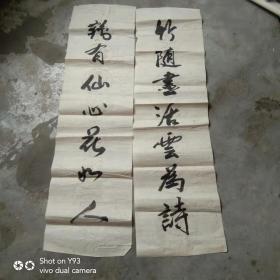 竹随画活云为诗
鹤有仙心花如人
SHOT ON Y93
vivo dual camera